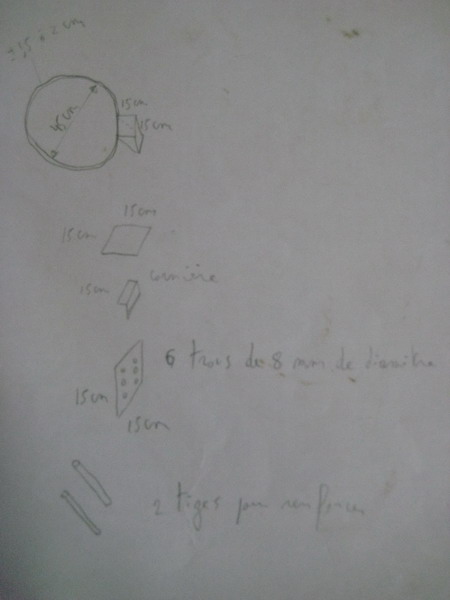 à 2 cm
45 cm
15 cm
15 cm
15 cm
15 cm
cornière
15 cm
6 trous de 8 mm de diamètre
15 cm
15 cm
2 tiges pour renforcer